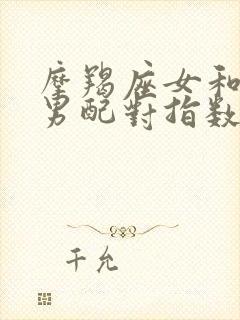 摩羯座女和
男配對指数
千允